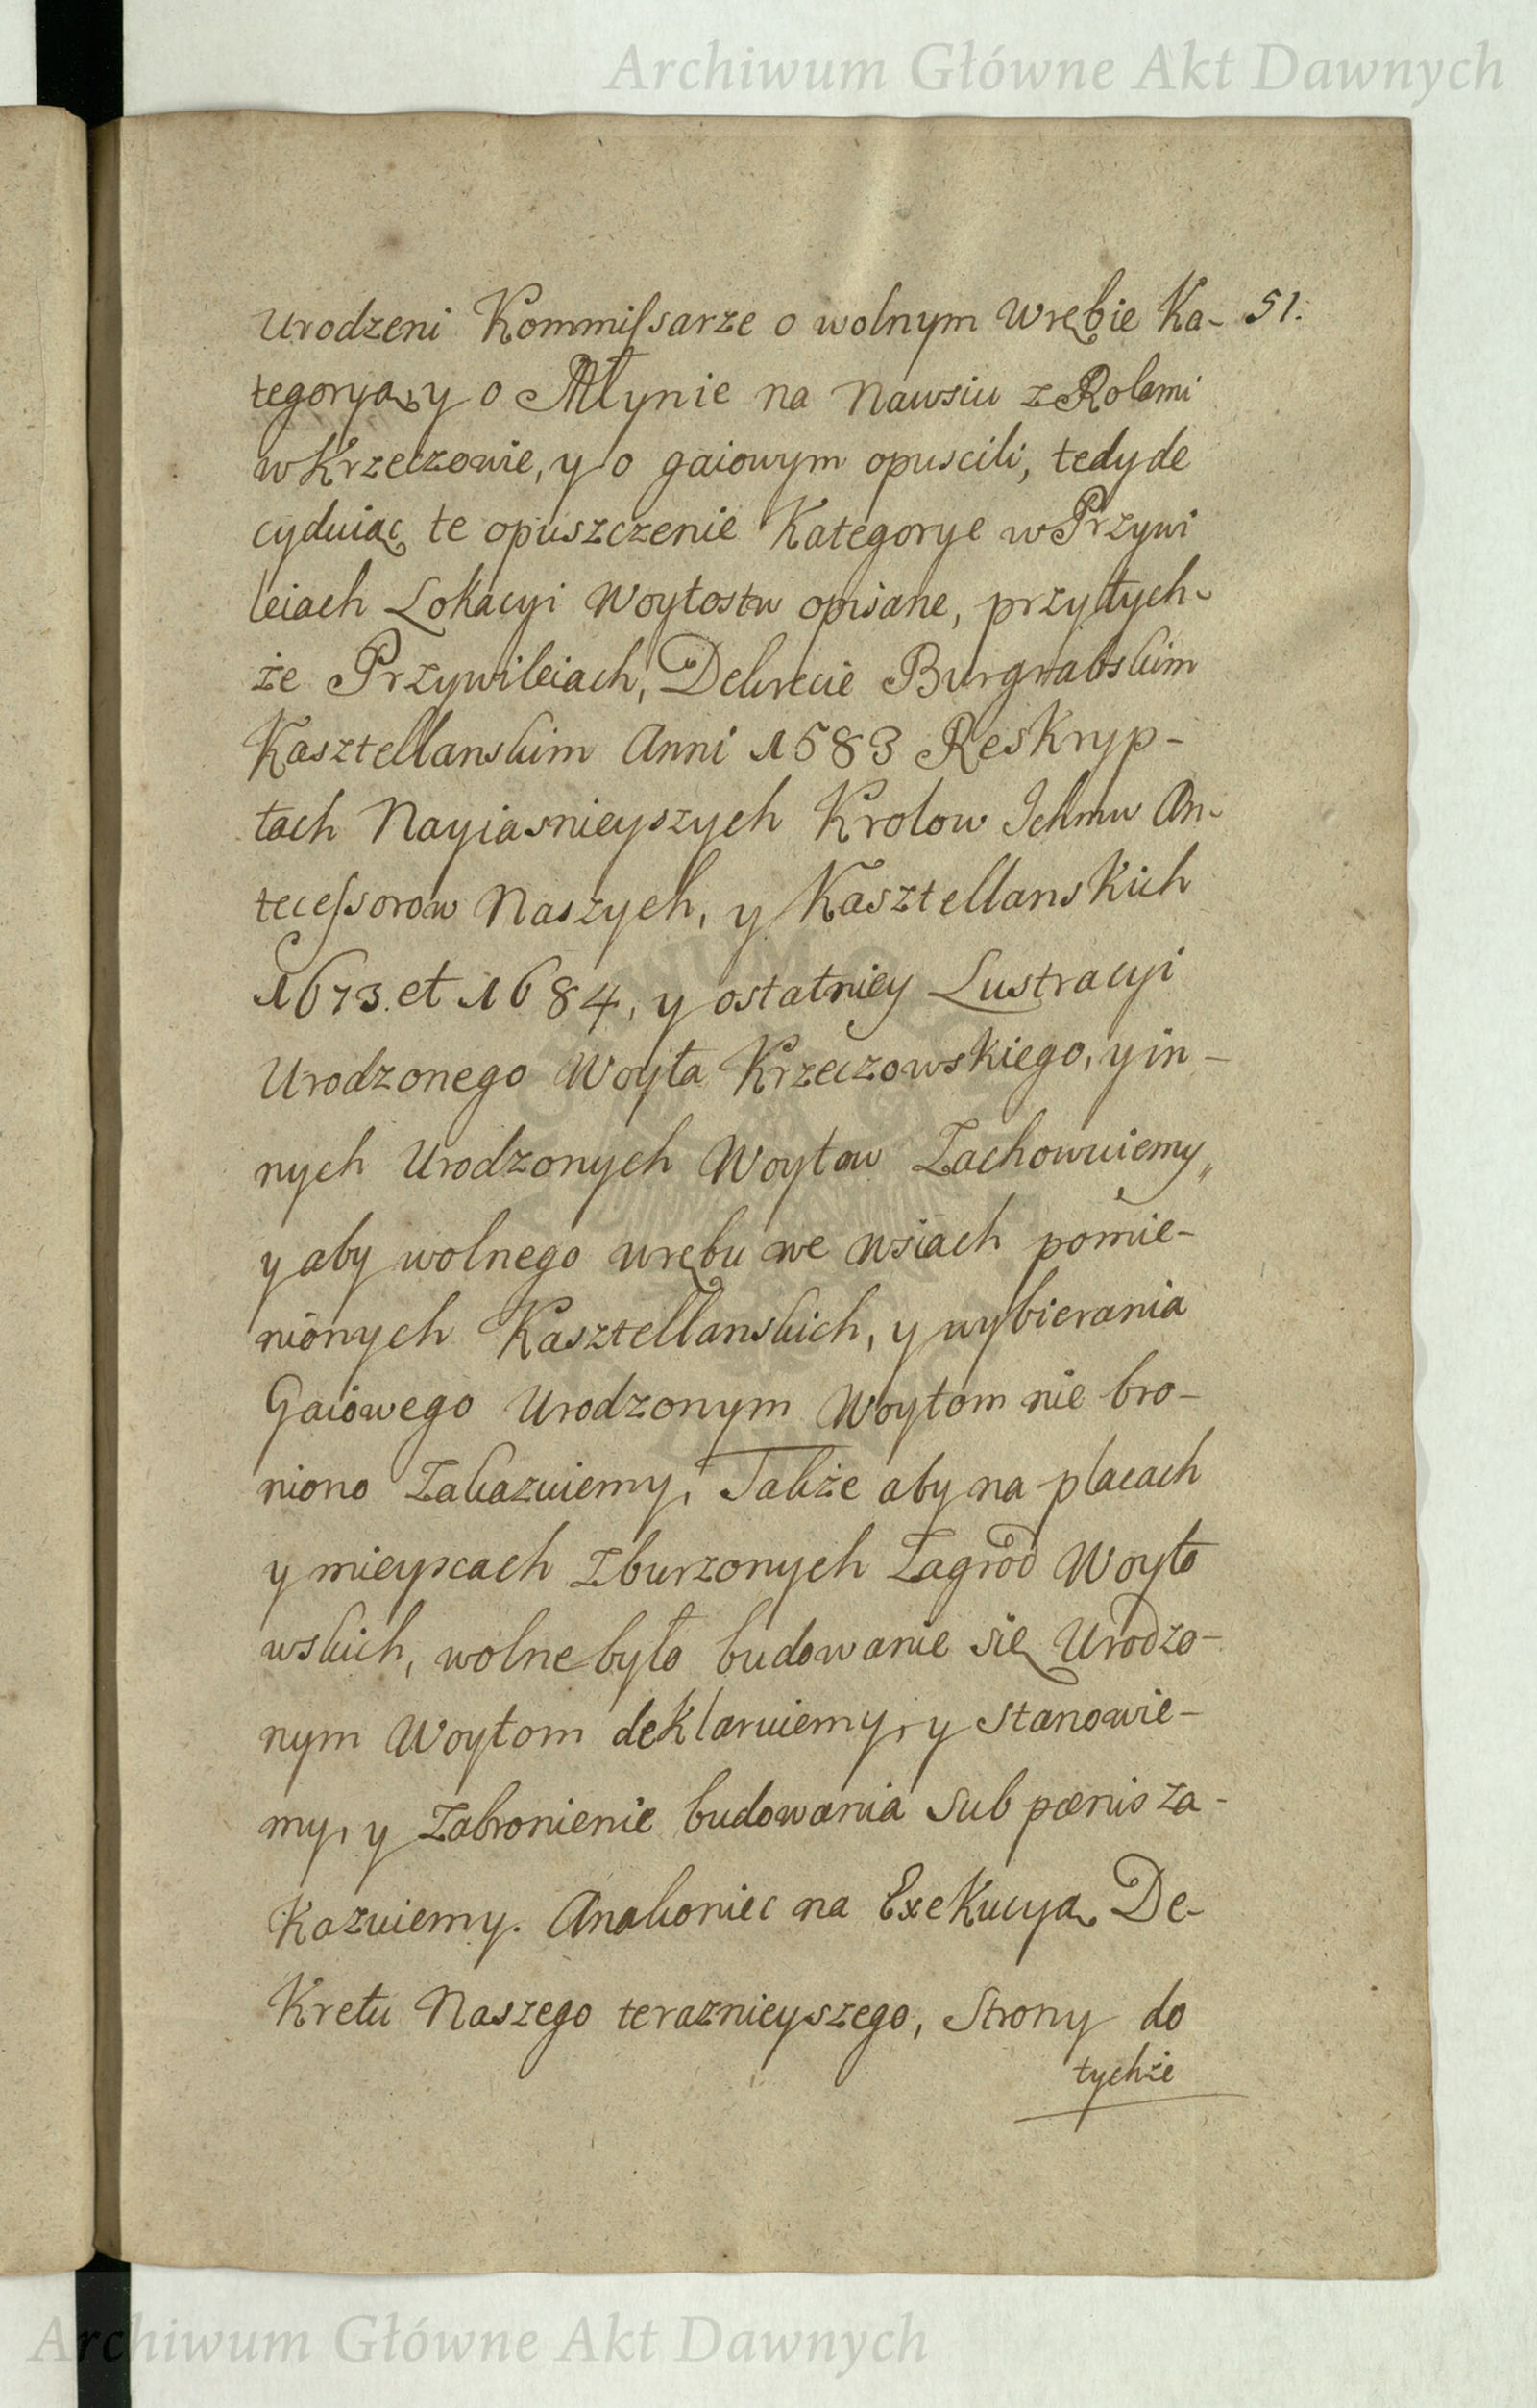 Archiwum Główne Akt Dawnych
Urodzeni Kommissarze o wolnym Wrębie Ka- 51.
tegoryą, y o Młynie na Nawsiu z Rolami
w Krzeczowie, y o gaiowym opuscili, tedy de
cyduiąc te opuszczenie Kategorye w Przywi
leiach Lokacyi Woytostw opisane, przy tych-
że Przywileiach, Dekrecie Burgrabskim
Kasztellanskim Anni 1583 Reskryp-
tach Nayiasnieyszych Krolow Ichmw An-
tecessorow Naszych, y Kasztellanskich
1673. et 1684, y ostatniey Lustracyi
Urodzonego Woyta Krzeczowskiego, y in-
nych Urodzonych Woytow Zachowuiemy,
y aby wolnego wrębu we wsiach pomie-
nionych Kasztellanskich, y wybierania
Gaiowego Urodzonym Woytom nie bro-
niono Zakazuiemy, Także aby na placach
y mieyscach Zburzonych Zagrod Woyto
wskich, wolne było budowanie się Urodzo-
nym Woytom deklaruiemy, y stanowie-
my, y Zabronienie budowania Sub pœnis za-
kazuiemy. Anakoniec na Exekucyą De-
Kretu Naszego teraznieyszego, Strony do
tychże
Archiwum Główne Akt Dawnych